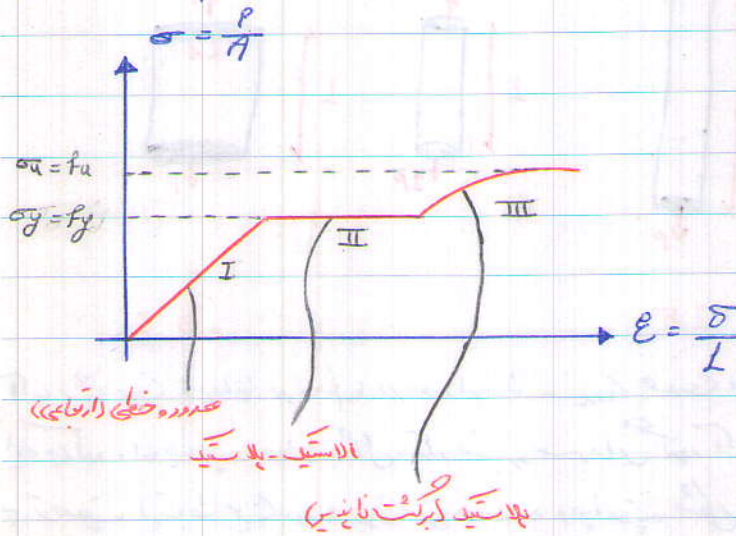 σ = P/A
σu = Fu
σy = Fy
I
II
III
ε = δ/L
محدوده خطی (ارتجاعی)
الاستیک - پلاستیک
پلاستیک (برگشت ناپذیر)